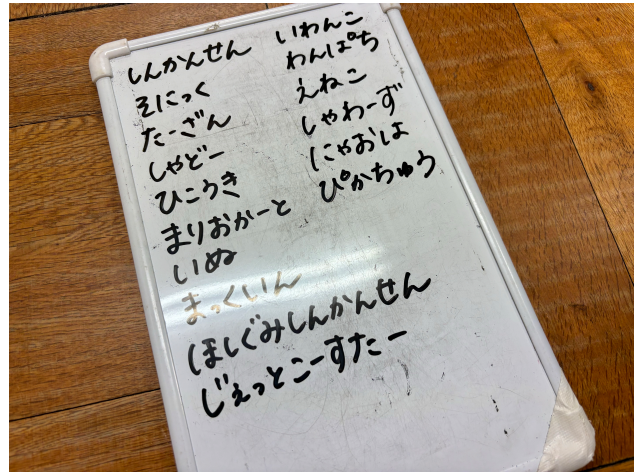 しんかんせん
そにっく
たーざん
しゃどー
ひこうき
まりおかーと
いぬ
まっくいん
ほしぐみしんかんせん
じぇっとこーすたー
いわんこ
わんぱち
えねこ
しゃわーず
にゃおは
ぴかちゅう